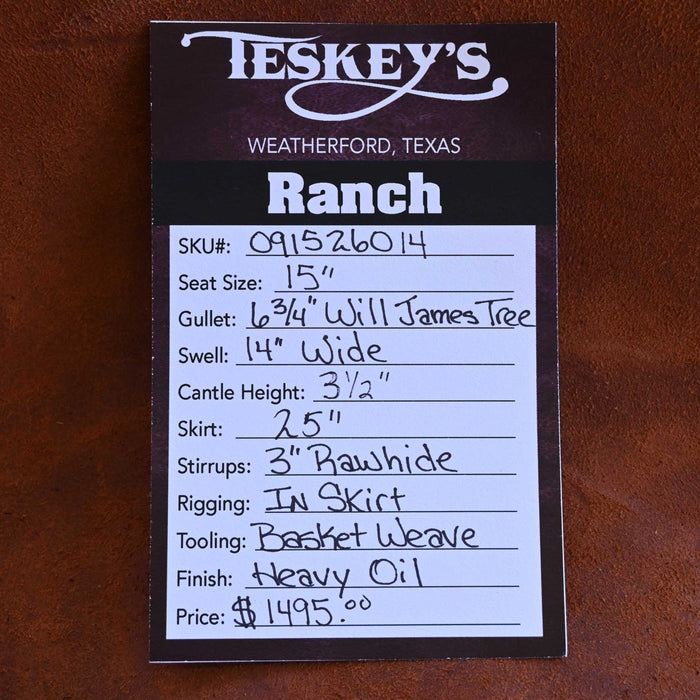 TESKEY'S
WEATHERFORD, TEXAS
Ranch
SKU#: 091526014
Seat Size: 15"
Gullet: 6 3/4" Will James Tree
Swell: 14" Wide
Cantle Height: 3 1/2"
Skirt: 25"
Stirrups: 3" Rawhide
Rigging: IN Skirt
Tooling: Basket Weave
Finish: Heavy Oil
Price: $1495.00